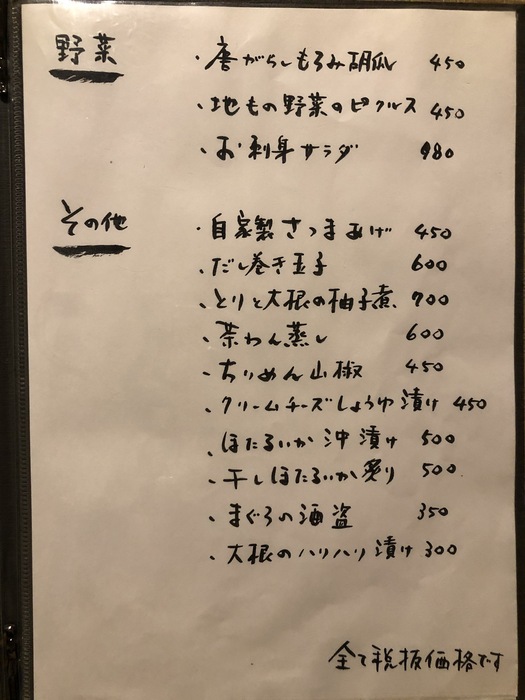 野菜
・唐がらしもろみ胡瓜 450
・地もの野菜のピクルス 450
・お刺身サラダ 980
その他
・自家製さつまあげ 450
・だし巻き玉子 600
・とりと大根の柚子煮 700
・茶わん蒸し 600
・ちりめん山椒 450
・クリームチーズしょうゆ漬け 450
・ほたるいか沖漬け 500
・干しほたるいか炙り 500
・まぐろの酒盗 350
・大根のハリハリ漬け 300
全て税抜価格です